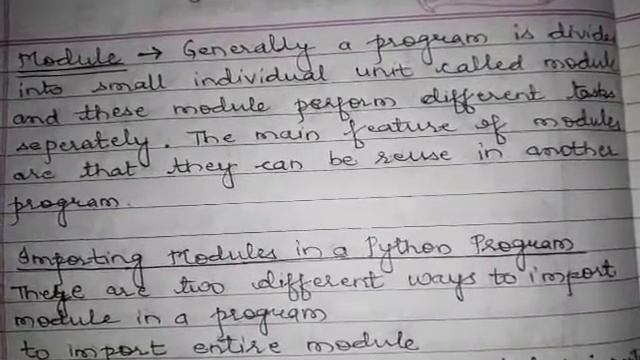 Module → Generally a program is divided
into small individual unit called module
and these module perform different tasks
seperately. The main feature of modules
are that they can be reuse in another
program.
Importing Modules in a Python Program
There are two different ways to import
module in a program
to import entire module